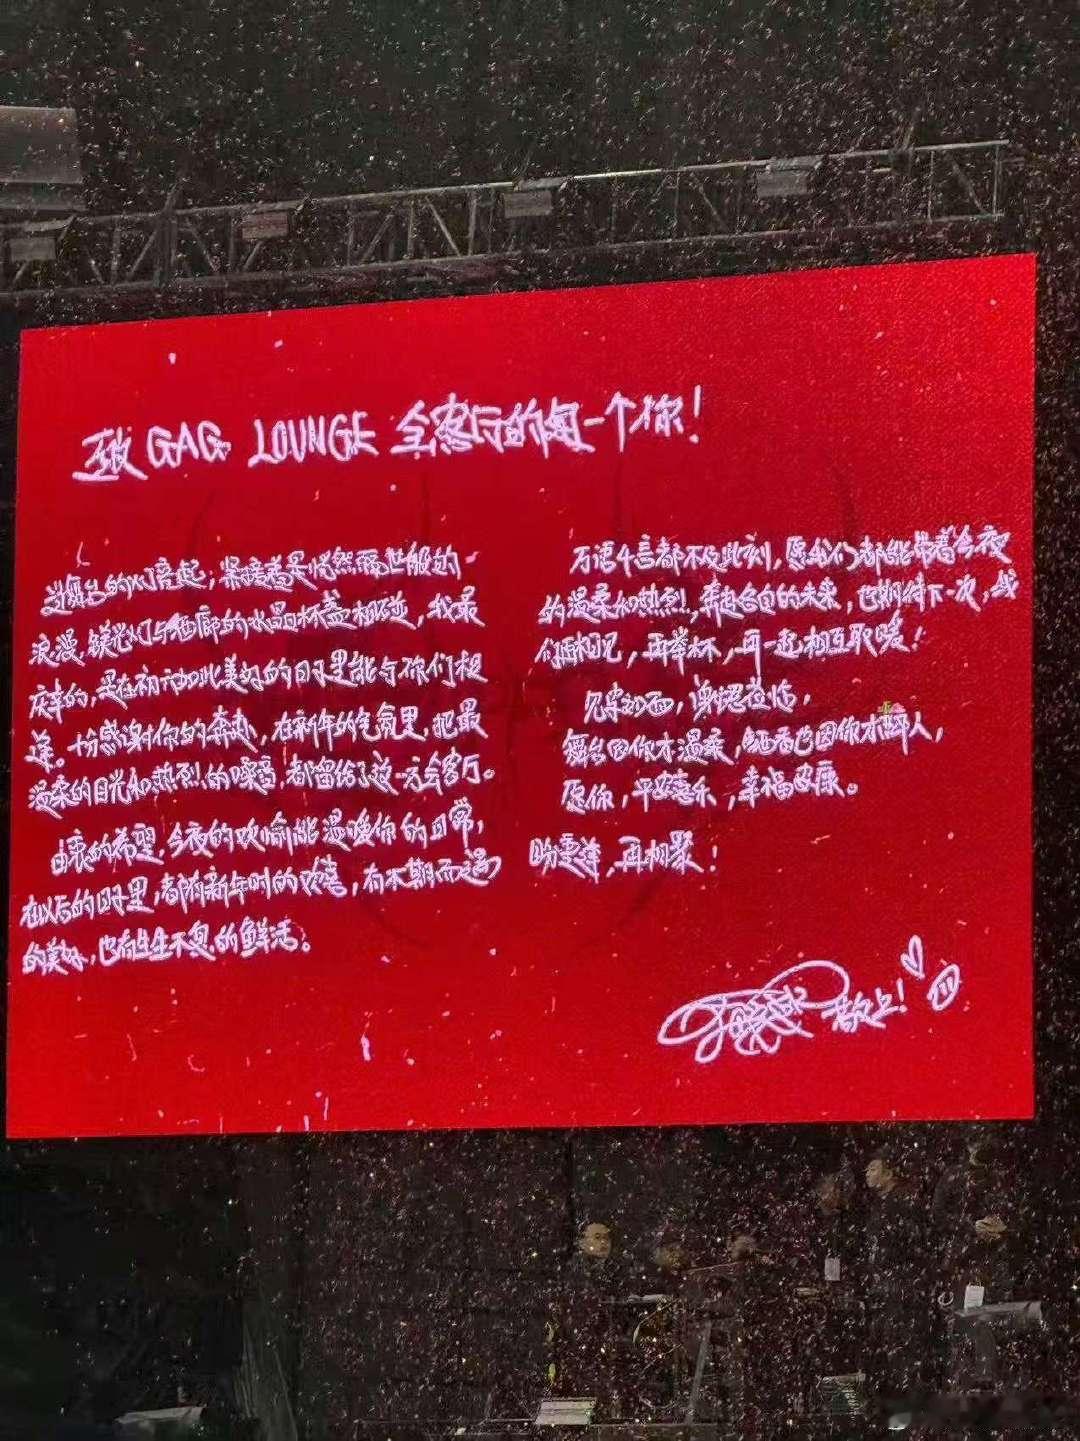 致 GAG LOUNGE 会客厅的每一个你！
当舞台的灯亮起，紧接着是恍然隔世般的
浪漫，镁光灯与酒廊的水晶杯盏相碰，我最
庆幸的，是在初如此美好的日子里能与你们相
逢。十分感谢你的奔赴，在新年的气氛里，把最
温柔的目光和热烈的嗓音，都留给了这一方会客厅。
由衷的希望，今夜的欢愉能温暖你的日常，
在以后的日子里，都有新年时的欢喜，有不期而遇
的美好，也有生生不息的鲜活。
万语千言都不及此刻，愿我们都能带着今夜
的温柔和热烈，奔赴各自的未来，也期待下一次，我
们再相见，再举杯，再一起相互取暖！
见字如面，
舞台因你才温柔，酒香也因你才醉人，
愿你，平安喜乐，幸福安康。
盼重逢，再相聚！
敬上！